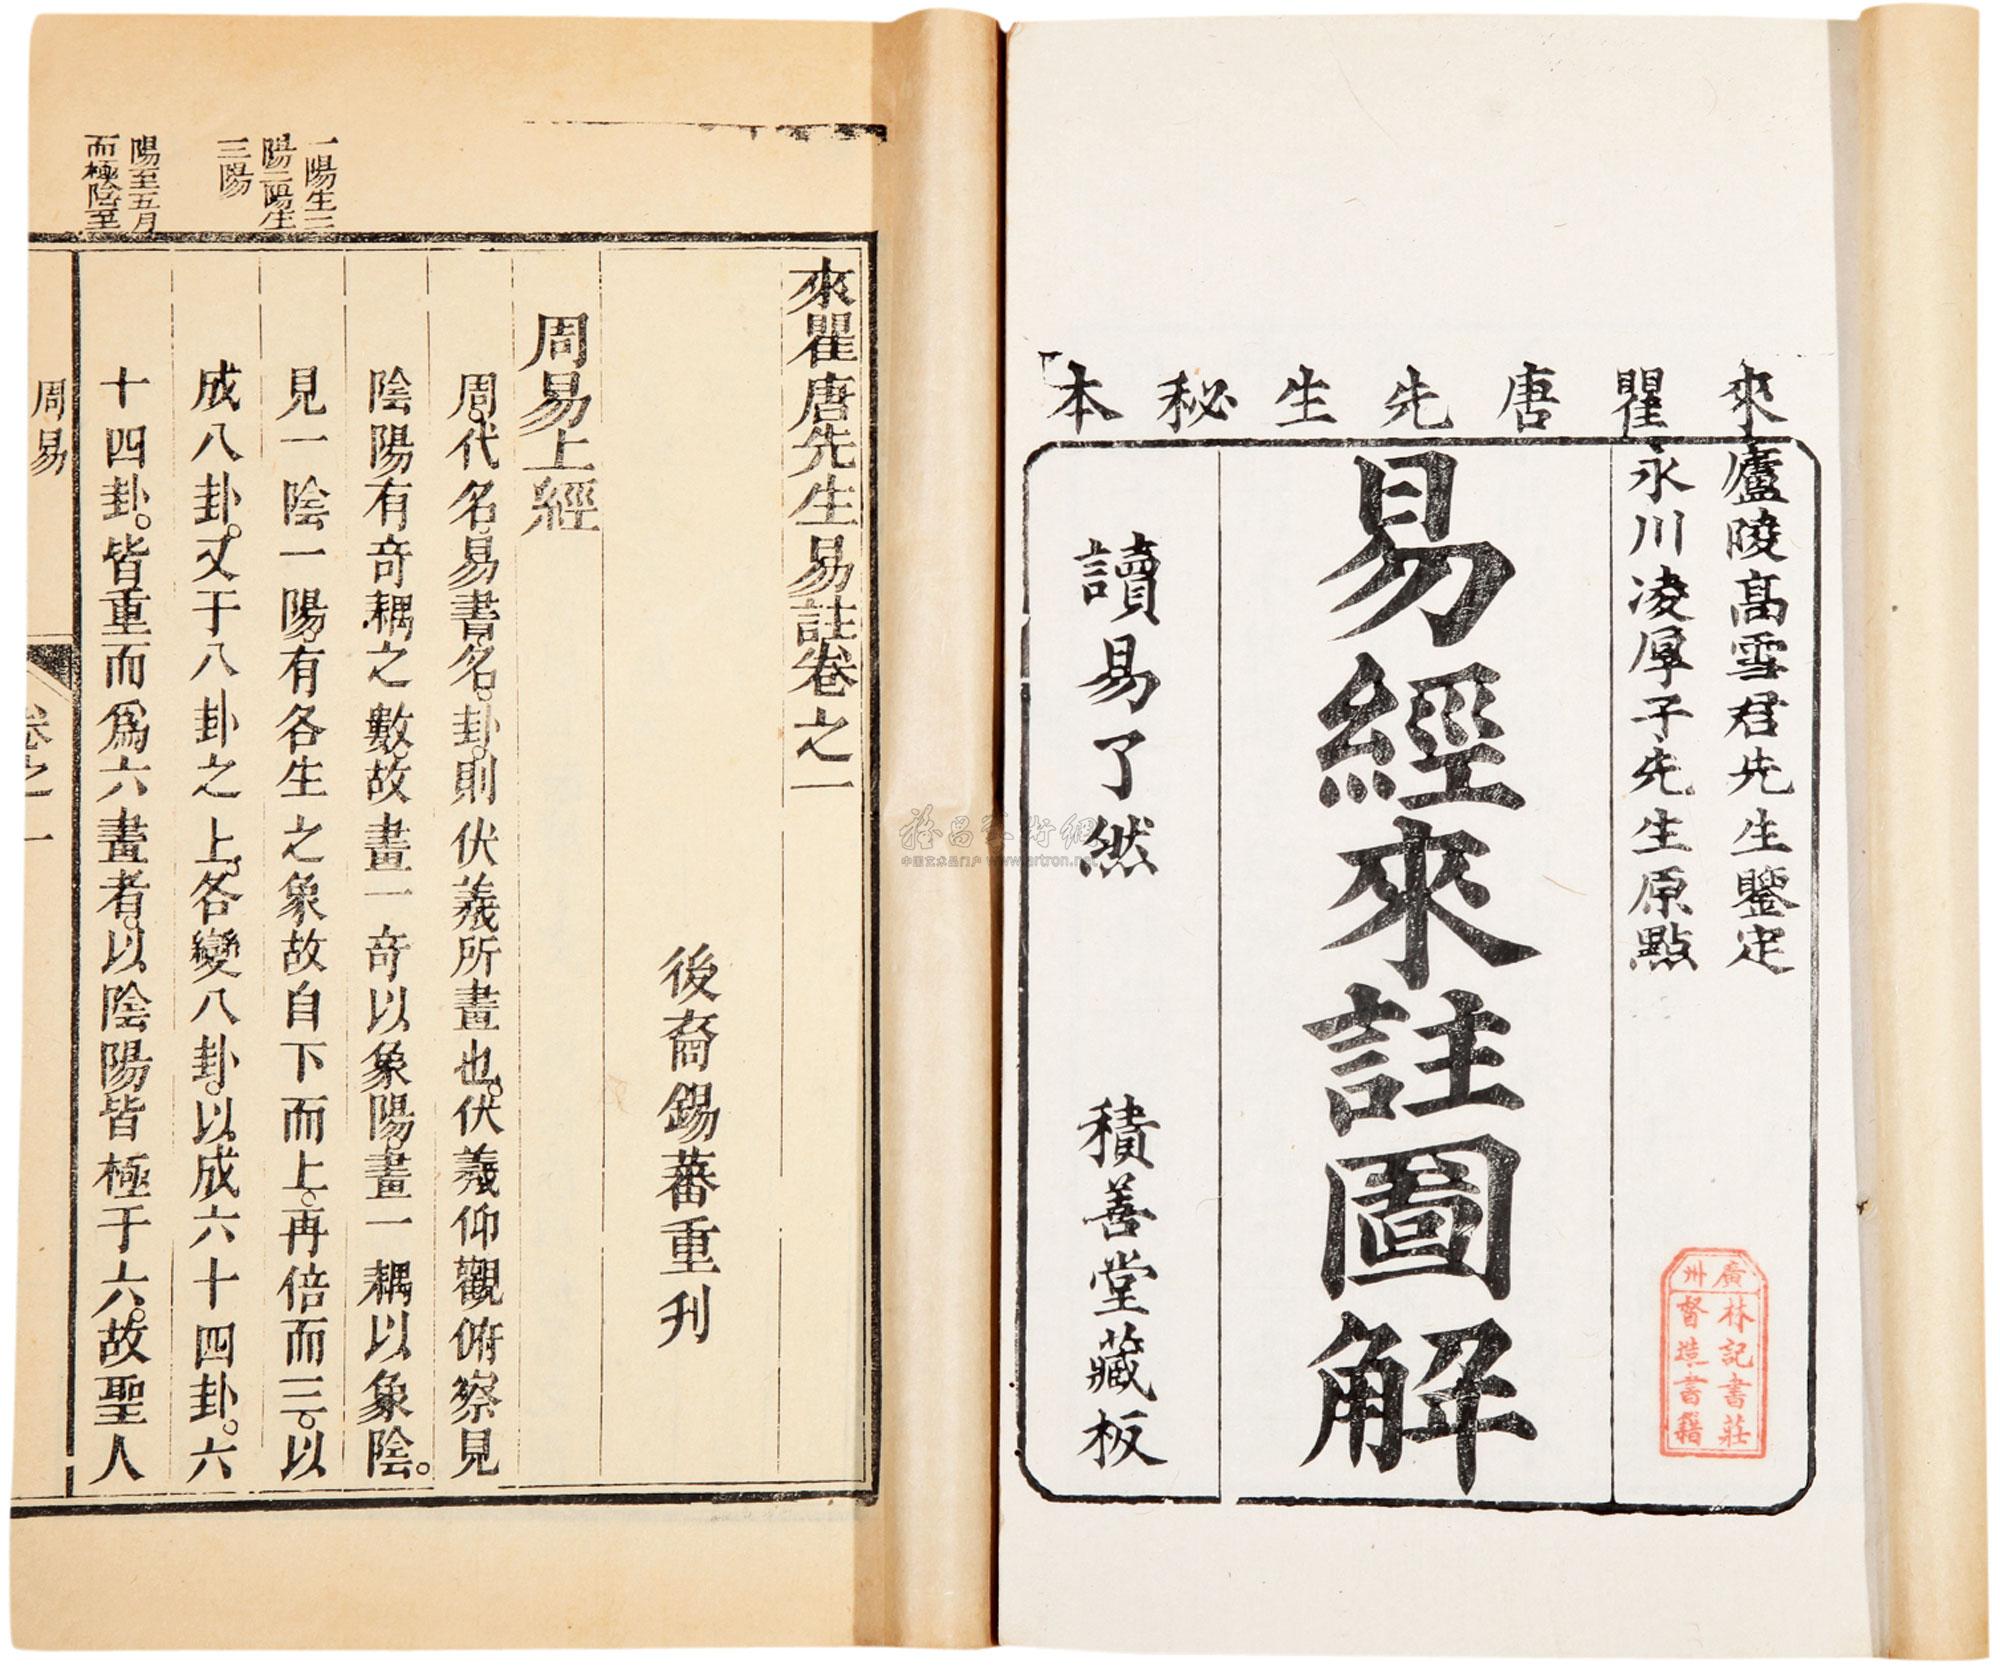 來瞿唐先生秘本
廬陵高雪君先生鑒定
永川凌厚子先生原點
易經來註圖解
讀易了然
積善堂藏板
廣州
林記書莊
督造書籍
來瞿唐先生易註卷之一
後裔錫蕃重刊
周易上經
周。代名。易書名。卦。則伏羲所畫也。伏羲仰觀俯察見
陰陽有奇耦之數。故畫一奇以象陽。畫一耦以象陰。
見一陰一陽。有各生之象故自下而上。再倍而三。以
成八卦。又于八卦之上。各變八卦。以成六十四卦。六
十四卦。皆重而爲六畫者。以陰陽皆極于六。故聖人
一陽生二
陽二陽生
三陽
陽至五月
而極陰至
周易
卷之一
中国艺术品门户 www.artron.net